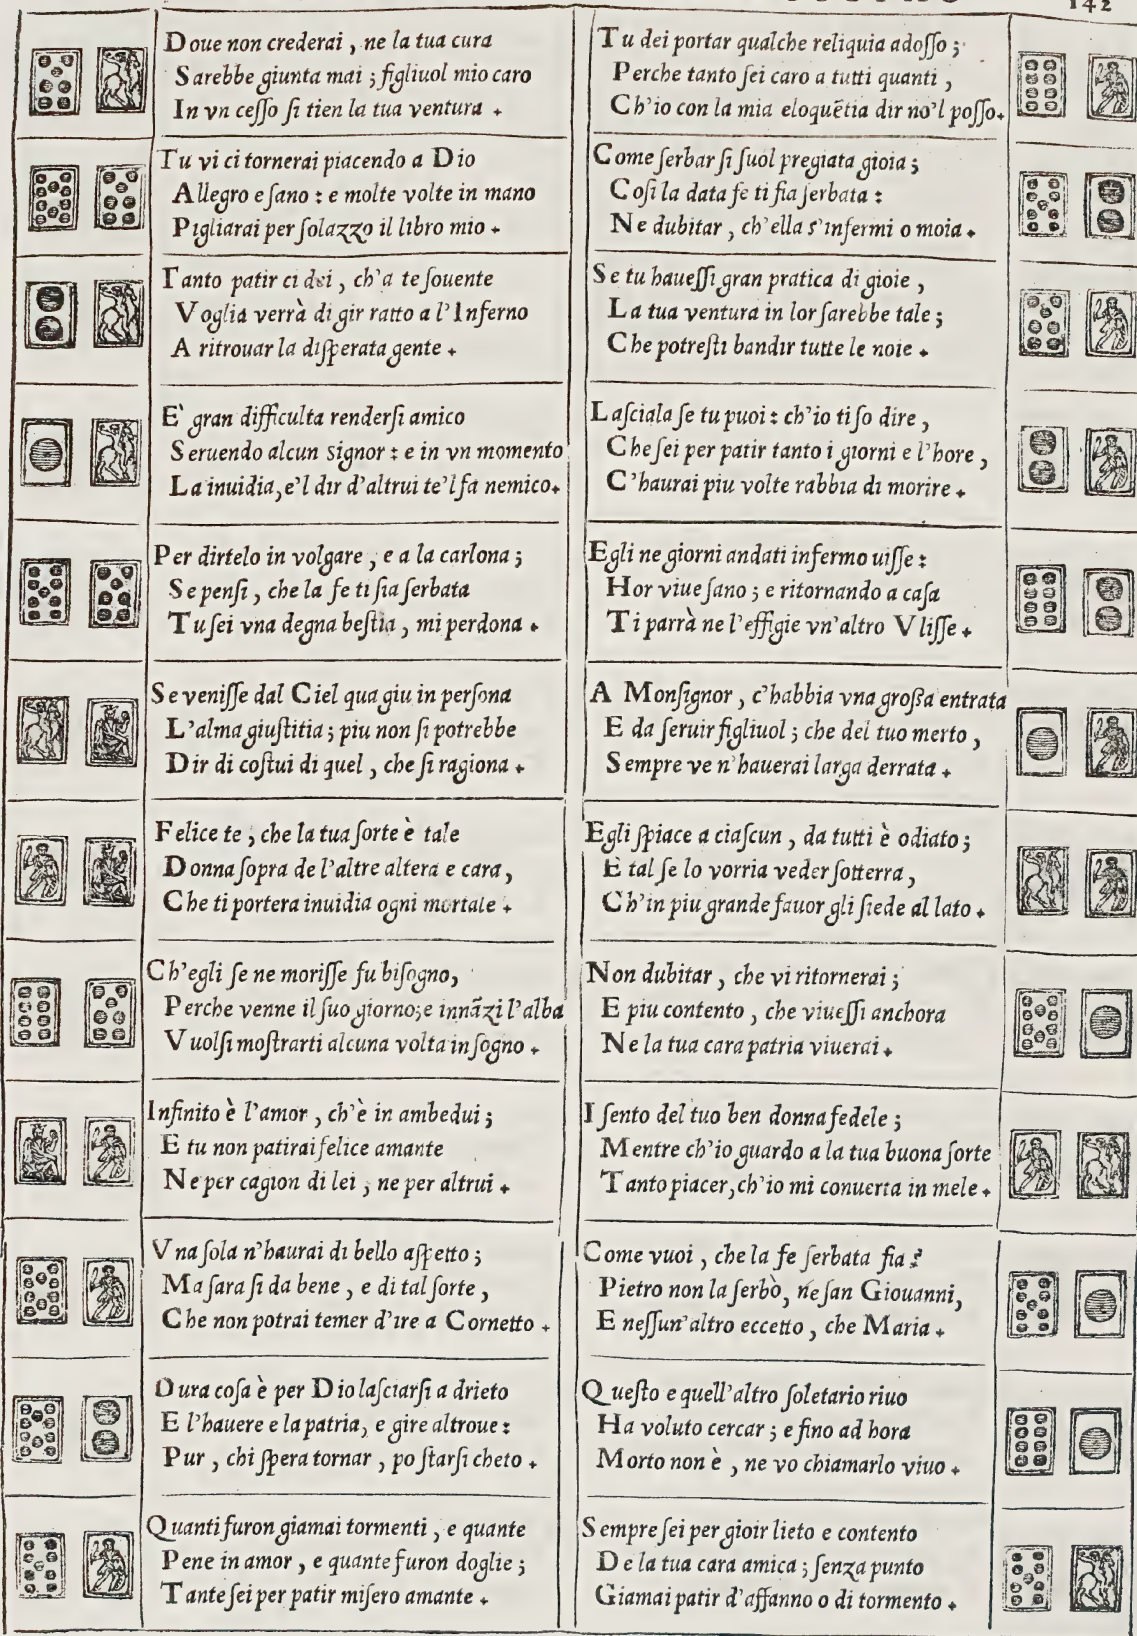 142
Doue non crederai, ne la tua cura
Sarebbe giunta mai; figliuol mio caro
In vn cesso si tien la tua ventura.
Tu vi ci tornerai piacendo a Dio
Allegro e sano: e molte volte in mano
Pigliarai per solazzo il libro mio.
Tanto patir ci dei, ch'a te souente
Voglia verrà di gir ratto a l'Inferno
A ritrouar la disperata gente.
E' gran difficulta rendersi amico
Seruendo alcun signor: e in vn momento
La inuidia, e'l dir d'altrui te'l fa nemico.
Per dirtelo in volgare, e a la carlona;
Se pensi, che la fe ti sia serbata
Tu sei vna degna bestia, mi perdona.
Se venisse dal Ciel qua giu in persona
L'alma giustitia; piu non si potrebbe
Dir di costui di quel, che si ragiona.
Felice te, che la tua sorte è tale
Donna sopra de l'altre altera e cara,
Che ti portera inuidia ogni mortale.
Ch'egli se ne morisse fu bisogno,
Perche venne il suo giorno; e innãzi l'alba
Vuolsi mostrarti alcuna volta in sogno.
Infinito è l'amor, ch'è in ambedui;
E tu non patirai felice amante
Ne per cagion di lei, ne per altrui.
Vna sola n'haurai di bello aspetto;
Ma sara si da bene, e di tal sorte,
Che non potrai temer d'ire a Cornetto.
Dura cosa è per Dio lasciarsi a drieto
E l'hauere e la patria, e gire altroue:
Pur, chi spera tornar, po starsi cheto.
Quanti furon giamai tormenti, e quante
Pene in amor, e quante furon doglie;
Tante sei per patir misero amante.
Tu dei portar qualche reliquia adosso;
Perche tanto sei caro a tutti quanti,
Ch'io con la mia eloquẽtia dir no'l posso.
Come serbar si suol pregiata gioia;
Cosi la data fe ti fia serbata:
Ne dubitar, ch'ella s'infermi o moia.
Se tu hauessi gran pratica di gioie,
La tua ventura in lor sarebbe tale;
Che potresti bandir tutte le noie.
Lasciala se tu puoi: ch'io ti so dire,
Che sei per patir tanto i giorni e l'hore,
C'haurai piu volte rabbia di morire.
Egli ne giorni andati infermo uisse:
Hor viue sano; e ritornando a casa
Ti parrà ne l'effigie vn'altro Vlisse.
A Monsignor, c'habbia vna grossa entrata
E da seruir figliuol; che del tuo merto,
Sempre ve n'hauerai larga derrata.
Egli spiace a ciascun, da tutti è odiato;
E tal se lo vorria veder sotterra,
Ch'in piu grande fauor gli siede al lato.
Non dubitar, che vi ritornerai;
E piu contento, che viuessi anchora
Ne la tua cara patria viuerai.
I sento del tuo ben donna fedele;
Mentre ch'io guardo a la tua buona sorte
Tanto piacer, ch'io mi conuerta in mele.
Come vuoi, che la fe serbata fia?
Pietro non la serbò, ne san Giouanni,
E nessun'altro eccetto, che Maria.
Questo e quell'altro soletario riuo
Ha voluto cercar; e fino ad hora
Morto non è, ne vo chiamarlo viuo.
Sempre sei per gioir lieto e contento
De la tua cara amica; senza punto
Giamai patir d'affanno o di tormento.